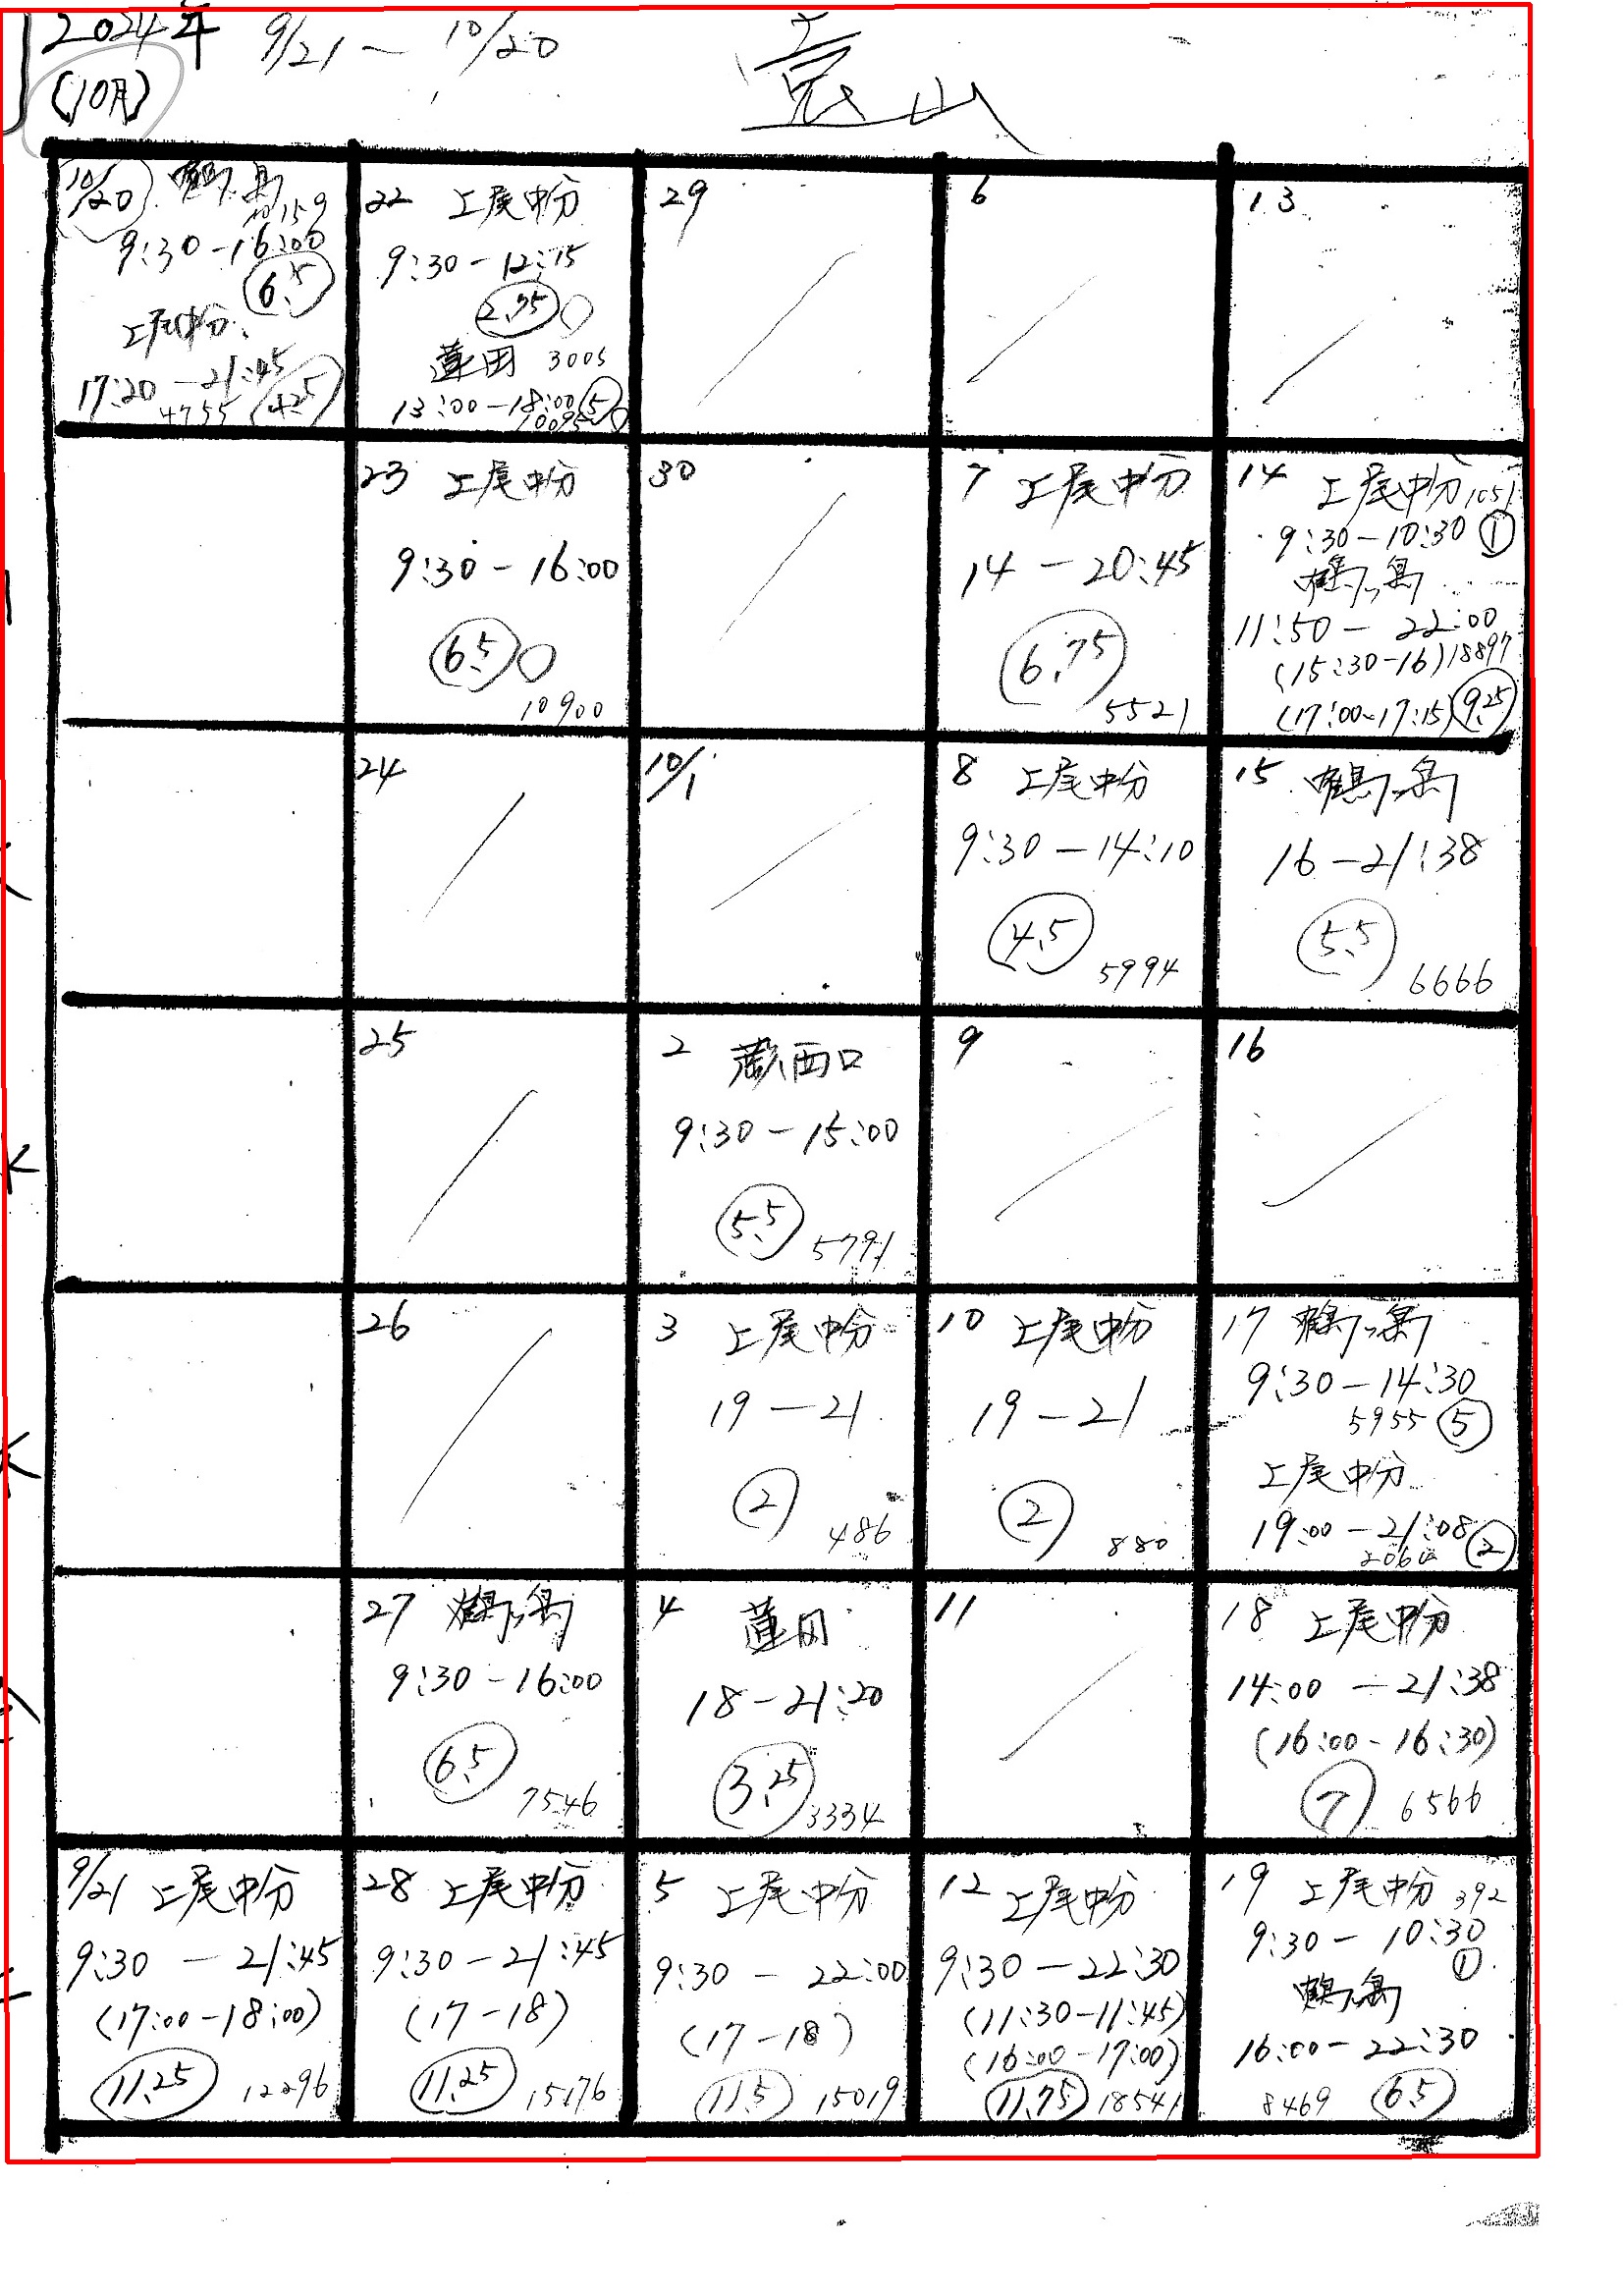 2024年 9/21 - 10/20
(10月)
10/20 鶴ヶ島
10159
9:30-16:00
6.5
上尾中分
17:20-21:45
4755 4.25
22 上尾中分
9:30-12:15
2.75
蓮田 3005
13:00-18:00 5
10095
29
6
13
23 上尾中分
9:30-16:00
6.5
10900
30
7 上尾中分
14-20:45
6.75
5521
14 上尾中分 1051
9:30-10:30 ①
鶴ヶ島
11:50-22:00
(15:30-16) 18897
(17:00-17:15) 9.25
24
10/1
8 上尾中分
9:30-14:10
4.5
5994
15 鶴ヶ島
16-21:38
5.5
6666
25
2 蕨西口
9:30-15:00
5.5
5791
9
16
26
3 上尾中分
19-21
②
486
10 上尾中分
19-21
②
880
17 鶴ヶ島
9:30-14:30
5955 ⑤
上尾中分
19:00-21:08 ②
27 鶴ヶ島
9:30-16:00
6.5
7546
4 蓮田
18-21:20
3.25
3334
11
18 上尾中分
14:00-21:38
(16:00-16:30)
⑦ 6566
9/21 上尾中分
9:30-21:45
(17:00-18:00)
11.25 12296
28 上尾中分
9:30-21:45
(17-18)
11.25 15176
5 上尾中分
9:30-22:00
(17-18)
11.5 15019
12 上尾中分
9:30-22:30
(11:30-11:45)
(16:00-17:00)
11.75 18541
19 上尾中分 392
9:30-10:30
①
鶴ヶ島
16:00-22:30
8469 6.5